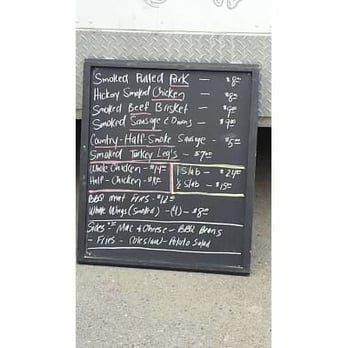 Smoked Pulled Pork — $8.00
Hickory Smoked Chicken — $8.00
Smoked Beef Brisket — $9.00
Smoked Sausage & Onions — $9.00
Country-Half-Smoke Sausage - $5.00
Smoked Turkey Leg's - $7.00
Whole Chicken - $14.00
Half - Chicken -
1 Slab - $24.00
½ Slab - $15.00
BBQ meat Fries - $12.00
Whole Wings (Smoked) - (4) - $8.00
Sides Mac & Cheese - BBQ Beans
- Fries - Coleslaw - Potato Salad